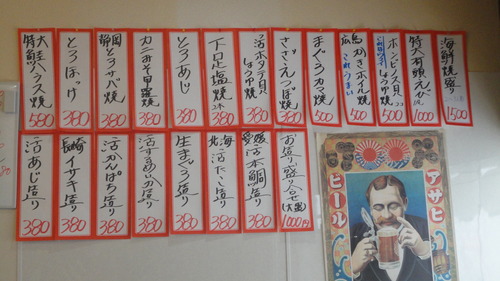 海鮮焼盛
1500
特大有頭えび
1000
ホンビノス貝
しょうゆ焼
500
広島カキホイル焼
これうまい
500
まぐろカマ焼
500
さざえつぼ焼
380
活ホタテ貝
しょうゆ焼
380
下足塩焼
380
とろあじ
380
カニみそ甲羅焼
380
静岡とろサバ焼
380
とろほっけ
380
特大鮭ハラス焼
580
お造り盛り合せ
1000円
愛媛活本鯛造り
380
北海活たこ造り
380
生まぐろ造り
380
活するめいか造り
380
活かんぱち造り
380
長崎イサキ造り
380
活あじ造り
380
アサヒ
ビール